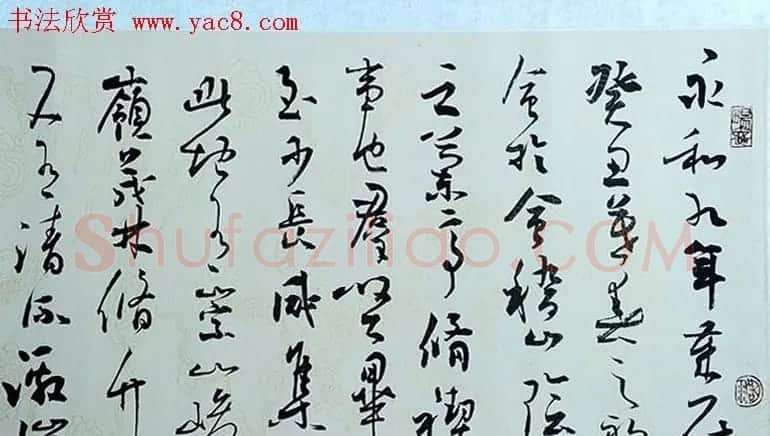 书法欣赏 www.yac8.com
永和九年歲在
癸丑暮春之初
會於會稽山陰
之蘭亭脩禊
事也羣賢畢
至少長咸集
此地有崇山峻
嶺茂林脩竹
又有清流激
Shufaziliao.COM